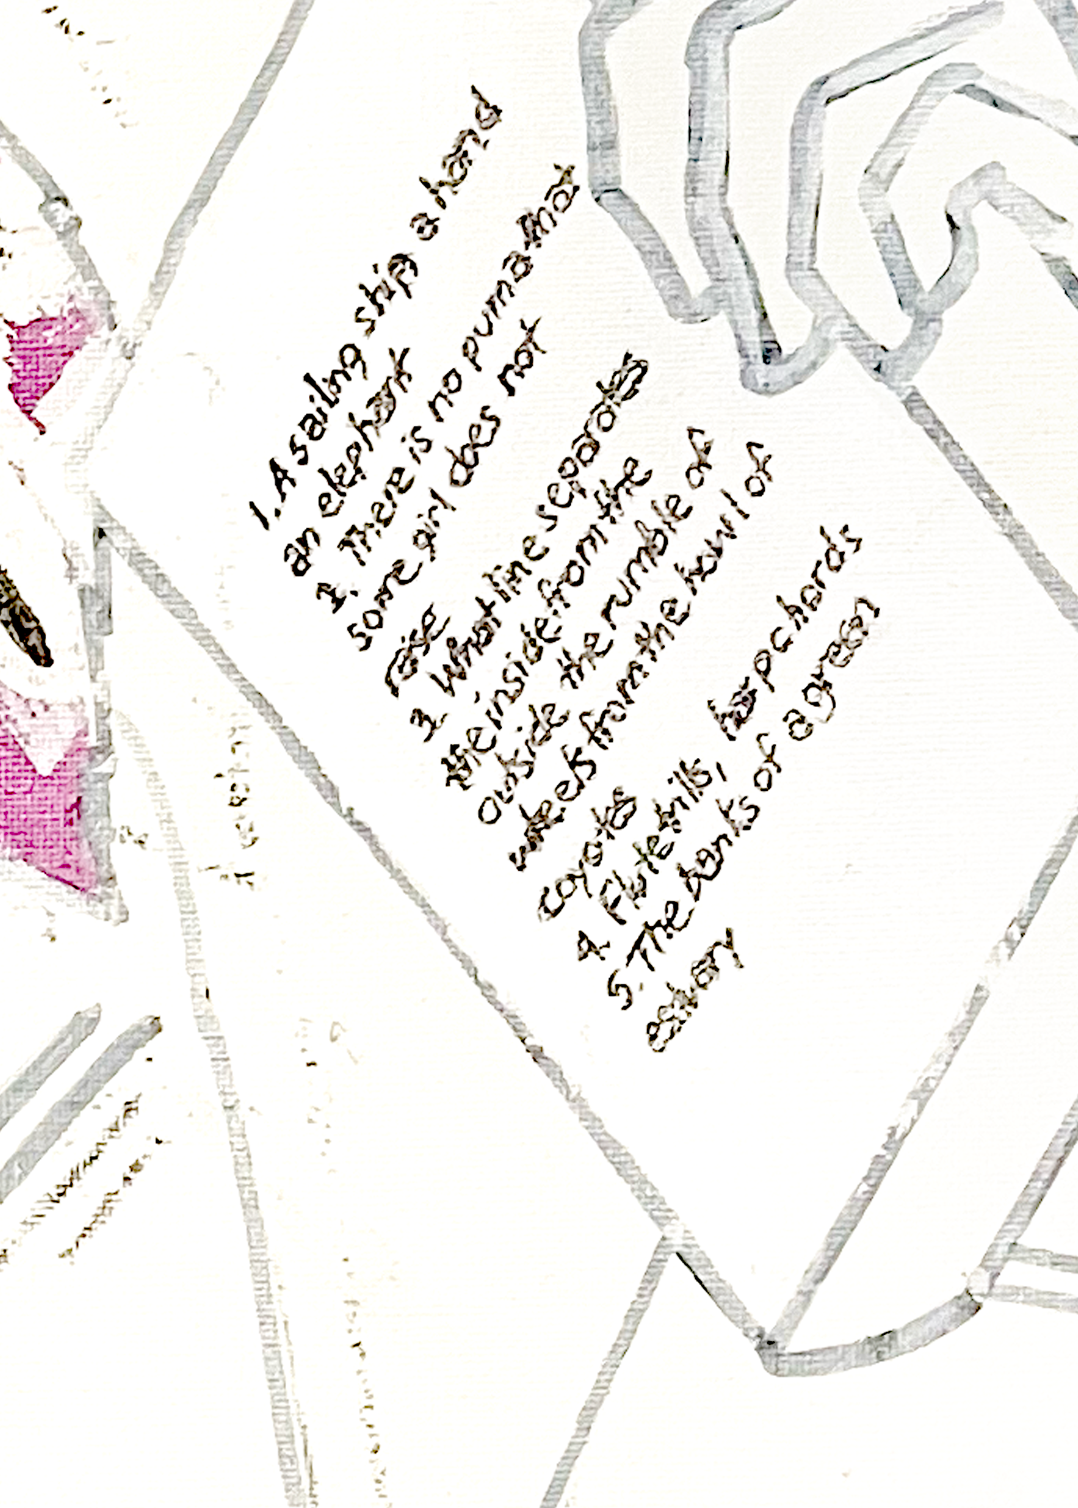 1. A sailing ship a hand
an elephant
2. There is no puma that
some girl does not
raise
3. What line separates
the inside from the
outside the rumble of
wheels from the howl of
coyotes
4. Flute trills, harpchords
5. The banks of a green
estuary